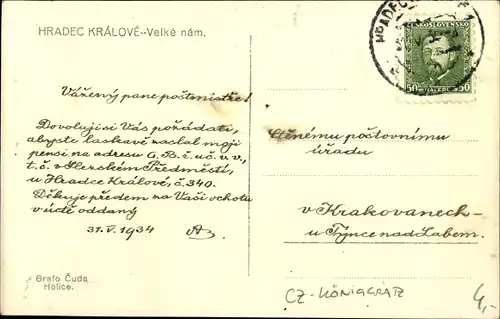 HRADEC KRÁLOVÉ--Velké nám.
HRADEC
ČESKOSLOVENSKO
50 HALÉŘŮ 50
Vážený pane poštmistře!
Dovoluji si Vás požádati,
abyste laskavě zaslal moji
pensi na adresu A. B. ř. uč. v. v.,
t. č. v Slezském Předměstí,
u Hradce Králové, č. 340.
Děkuje předem na Vaši ochotu
v úctě oddaný
31. V. 1934 AB
Ctěnému poštovnímu
úřadu
v Krakovanech-
u Týnce nad Labem.
Grafo Čuda
Holice.
CZ-KÖNIGGRÄTZ
4,-